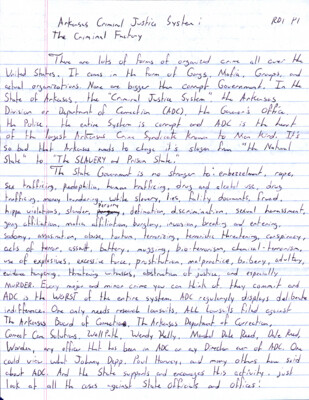 Arkansas Criminal Justice System: RD1 P1
The Criminal Factory
There are lots of forms of organized crime all over the
United States. It comes in the form of Gangs, Mafia, Groups, and
actual organizations. None are bigger than corrupt Government. In the
State of Arkansas, the "Criminal Justice System" the Arkansas
Division or Department of Correction (ADC), the Governor's Office,
the Police, the entire system is corrupt and ADC is the heart
of the largest Arkansas Crime Syndicate Known to Man Kind. It's
so bad that Arkansas needs to change it's slogan from "the Natural
State" to "The SLAVERY and Prison State."
The State Government is no stranger to: embezzlement, rape,
sex trafficking, pedophilia, human trafficking, drug and alcohol use, drug
trafficking, money laundering, white slavery, lies, falsify documents, fraud,
hippa violations, slander, perjury, defination, discrimination, sexual harassment,
gang affiliations, mafia affiliation, burglary, invasion, breaking and entering,
sodomy, assassination, abuse, torture, terrorizing, terroristic threatening, conspiracy,
acts of terror, assault, battery, mugging, bio-terrorism, chemical-terrorism,
use of explosives, excessive force, prostitution, malpractice, bribery, adultry,
evidence tampering, threatening witnesses, obstruction of justice, and especially
MURDER. Every major and minor crime you can think of they commit and
ADC is the WORST of the entire system. ADC regularly displays deliberate
indifference. One only needs research lawsuits, ALL lawsuits filed against
The Arkansas Board of Corrections, The Arkansas Department of Correction,
Correct Care Solutions, WellPath, Wendy Kelly, Marshal Dale Reed, Dale Reed,
Warden, any officer that has been in ADC or any Director over of ADC. One
could view what Johnny Depp, Paul Harvey, and many others have said
about ADC. And the State supports and encourages this activity - just
look at all the cases against State officials and offices!